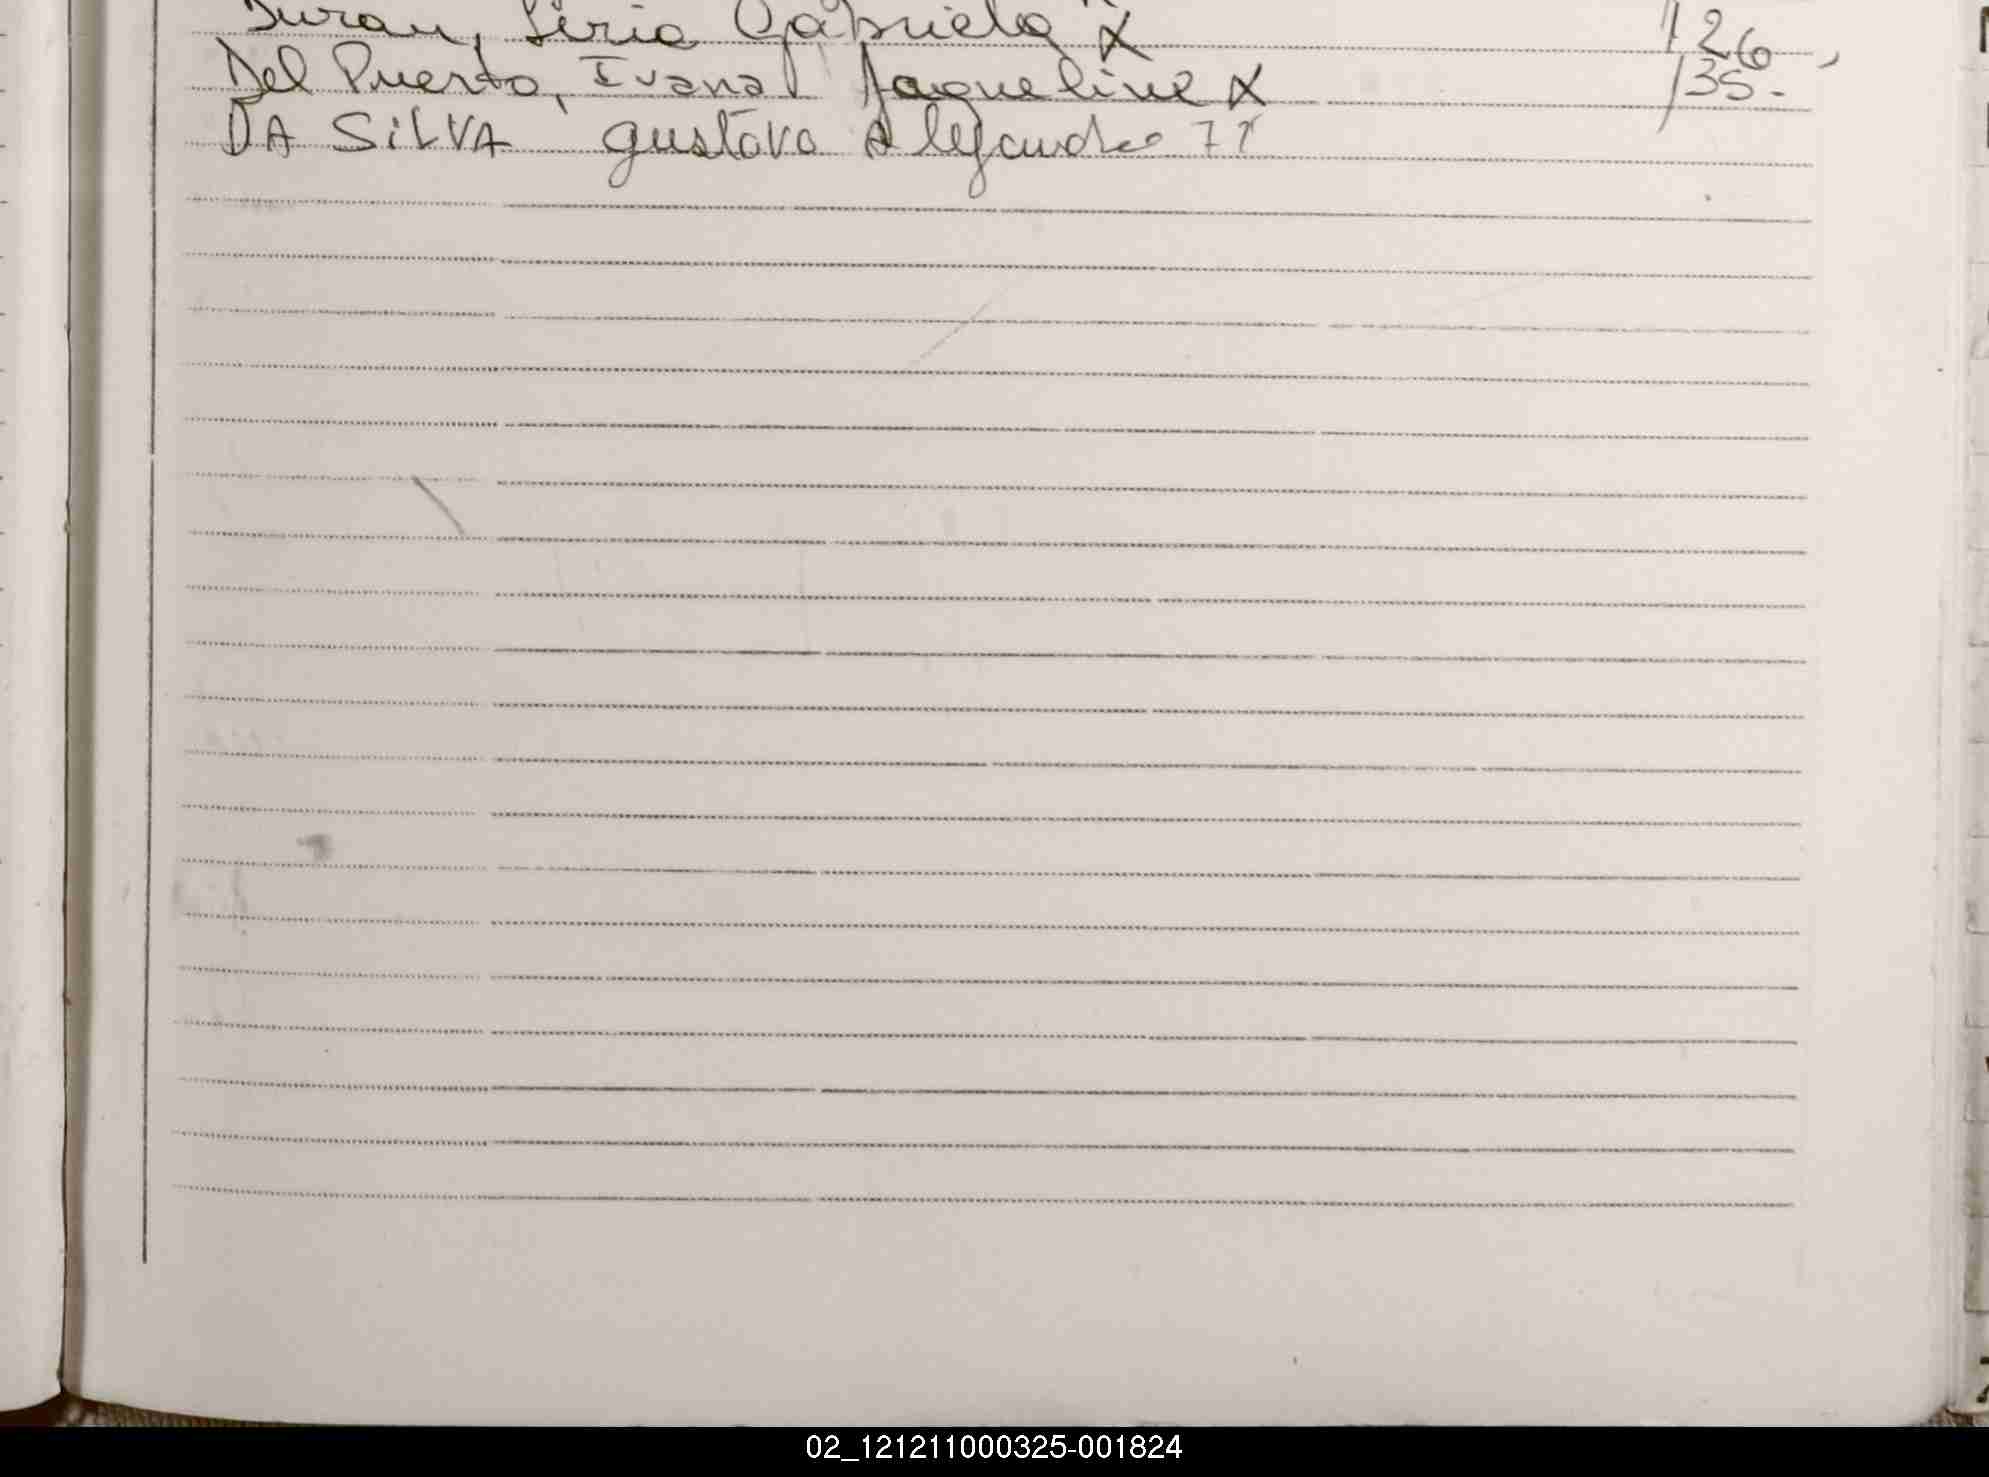 Duran, Liria Gabriela X 126
Del Puerto, Ivana Jaqueline X 135.
DA SILVA Gustavo Alejandro
02_121211000325-001824